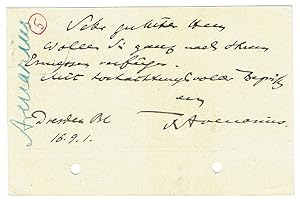 Avenarius
5
Sehr geehrter Herr
wollen Sie ganz nach Ihrem
Ermessen verfügen.
Mit hochachtungsvoller Begrüßg
Dresden Bl
16.9.1.
FAvenarius.